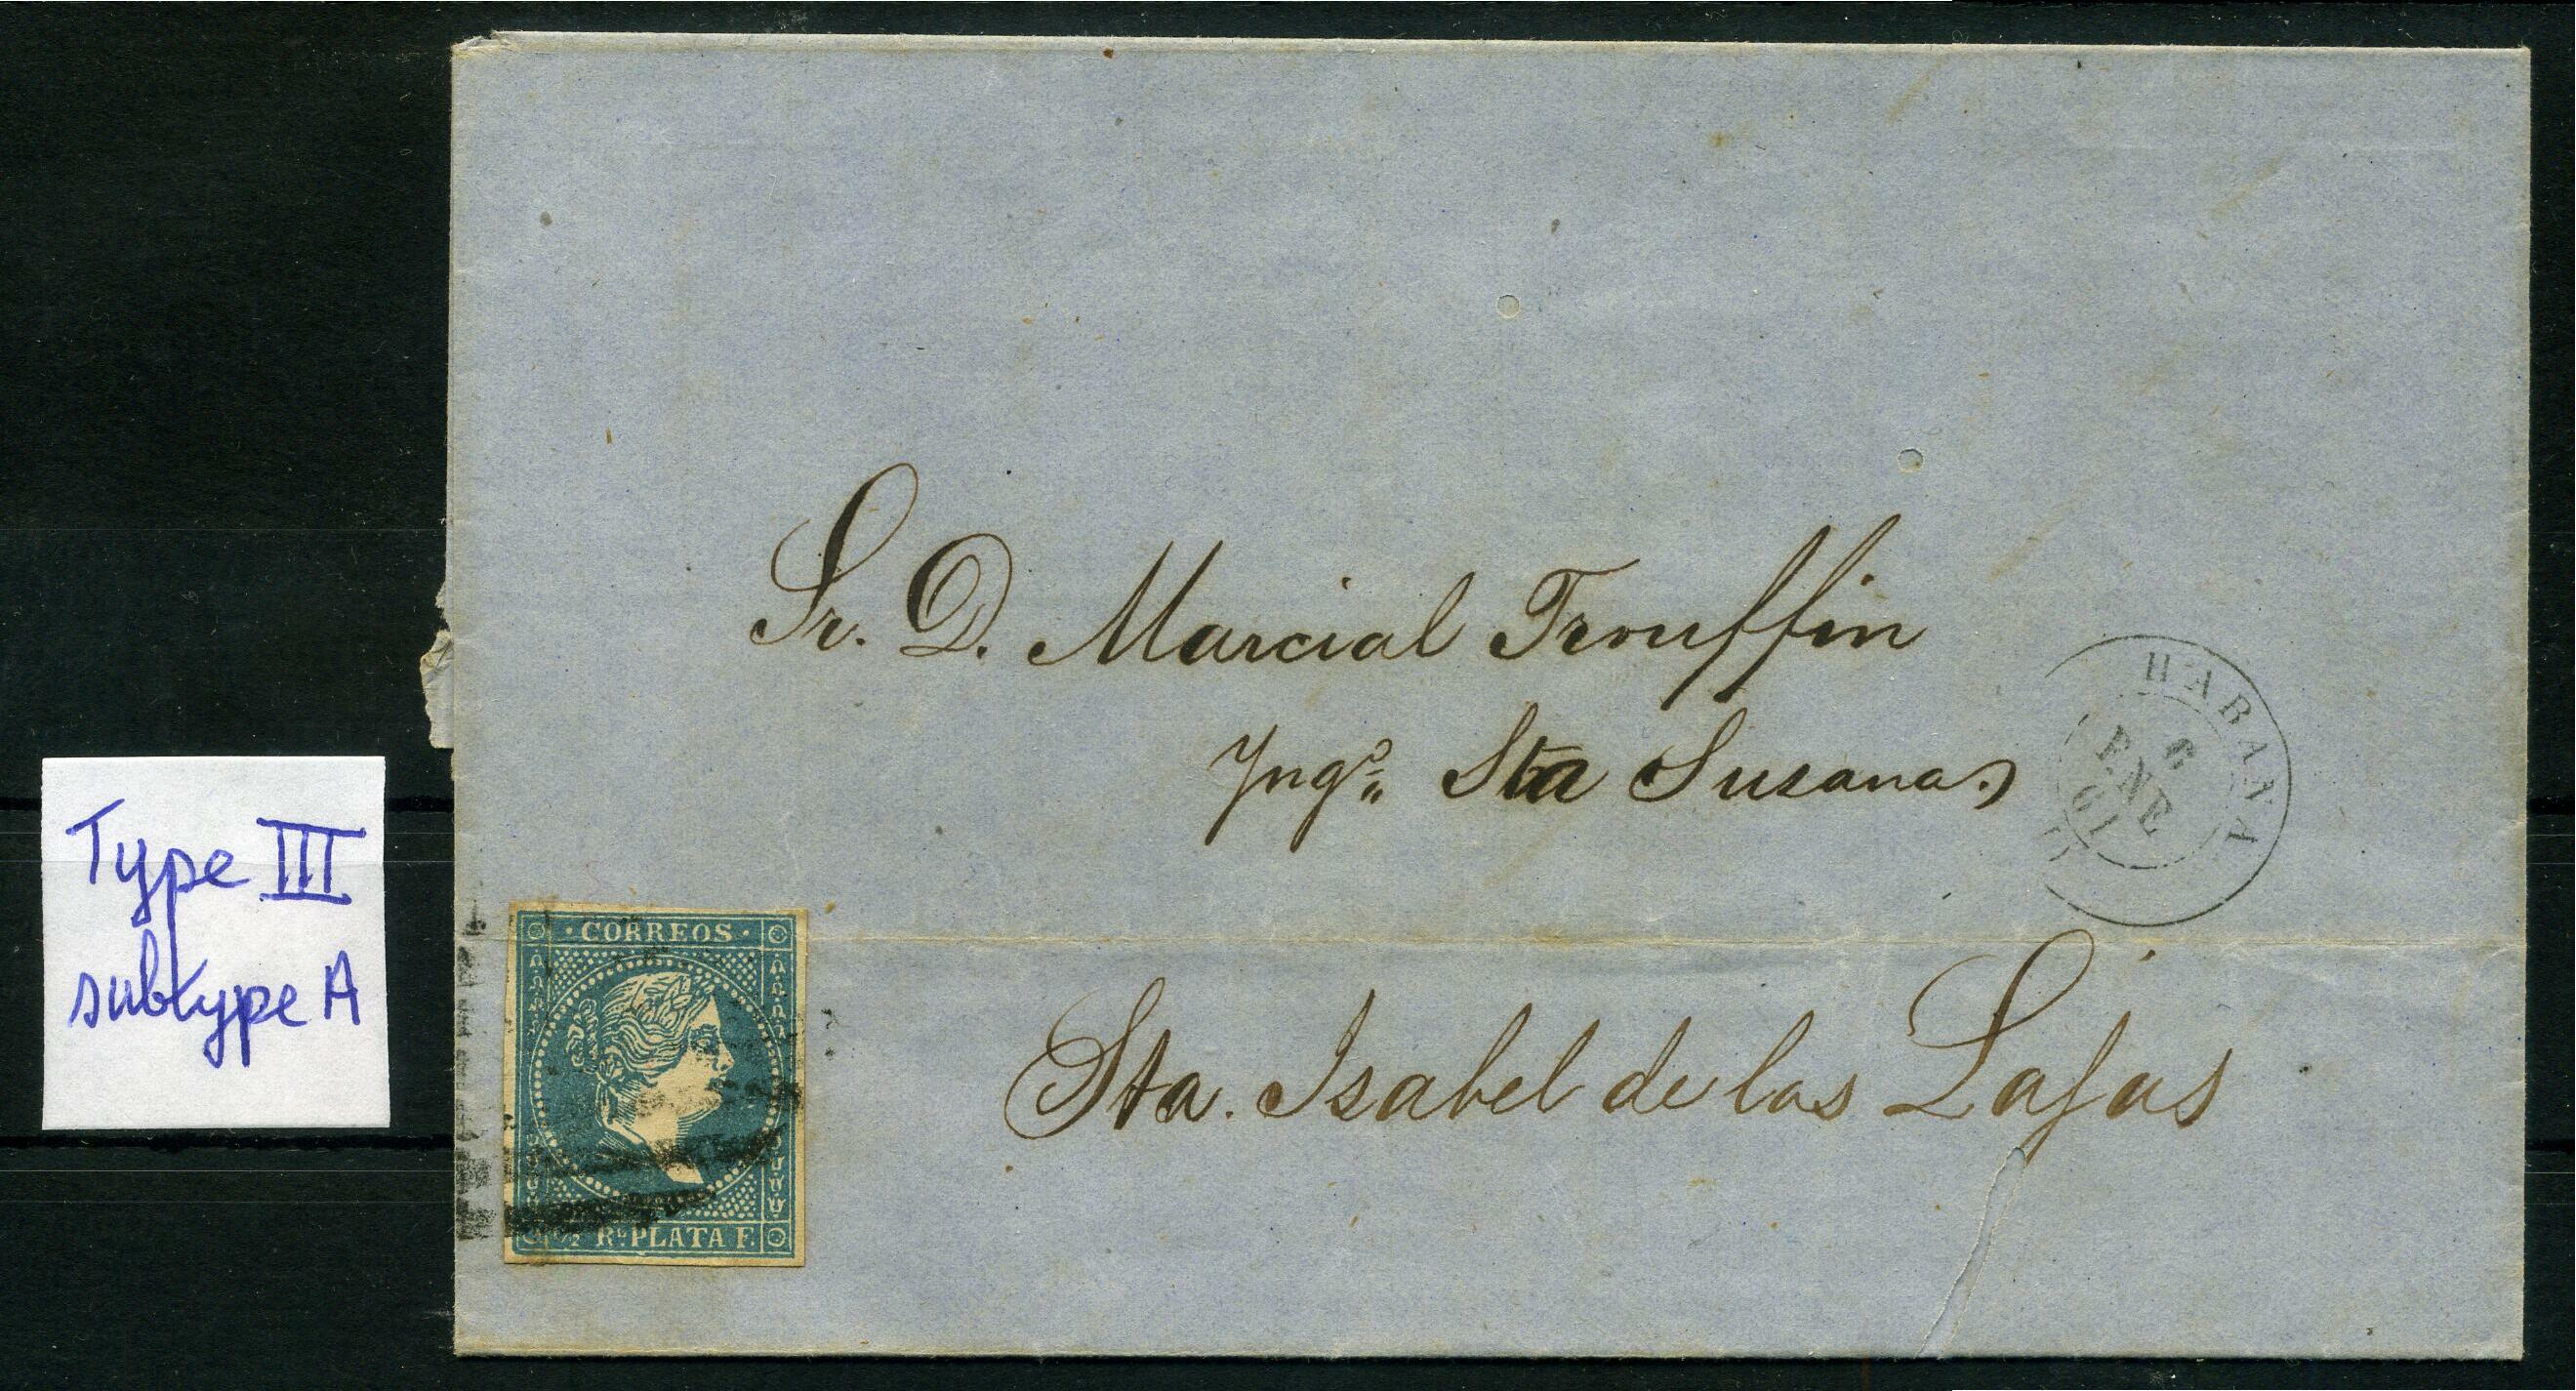 Sr. D. Marcial Trouffin
Yngº. Sta Susana
HABANA
6
ENE
61
Type III
subtype A
· CORREOS ·
Sta. Isabel de las Lajas
½ Rˡ PLATA F.